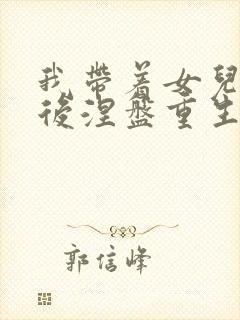 我帶着女兒
後涅盤重生
郭信峰